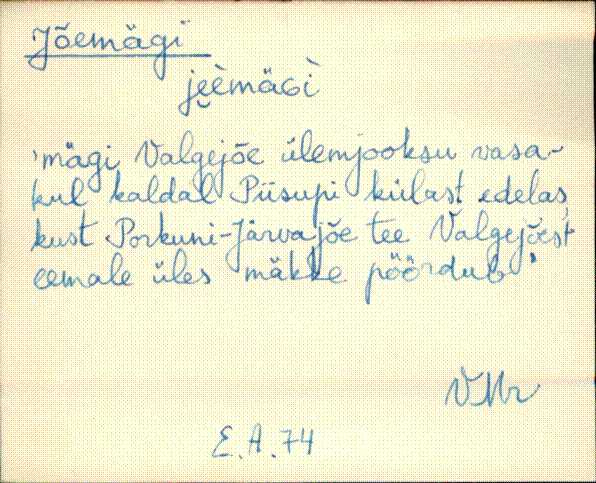 Jõemägi
jeèmäGì
'mägi Valgejõe ülemjooksu vasa-
kul kaldal Piisupi külast edelas,
kust Porkuni-Järvajõe tee Valgejõest
eemale üles mäkke pöördub'
VMr
E.A.74